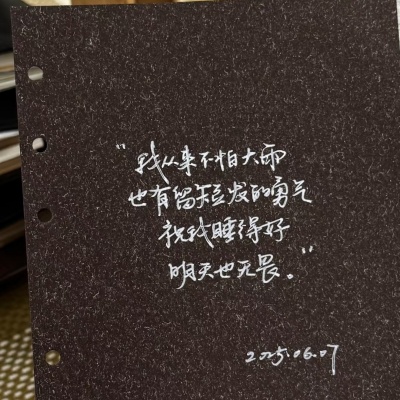 “我从来不怕大雨
也有留短发的勇气
祝我睡得好
明天也无畏。”
2025.06.07